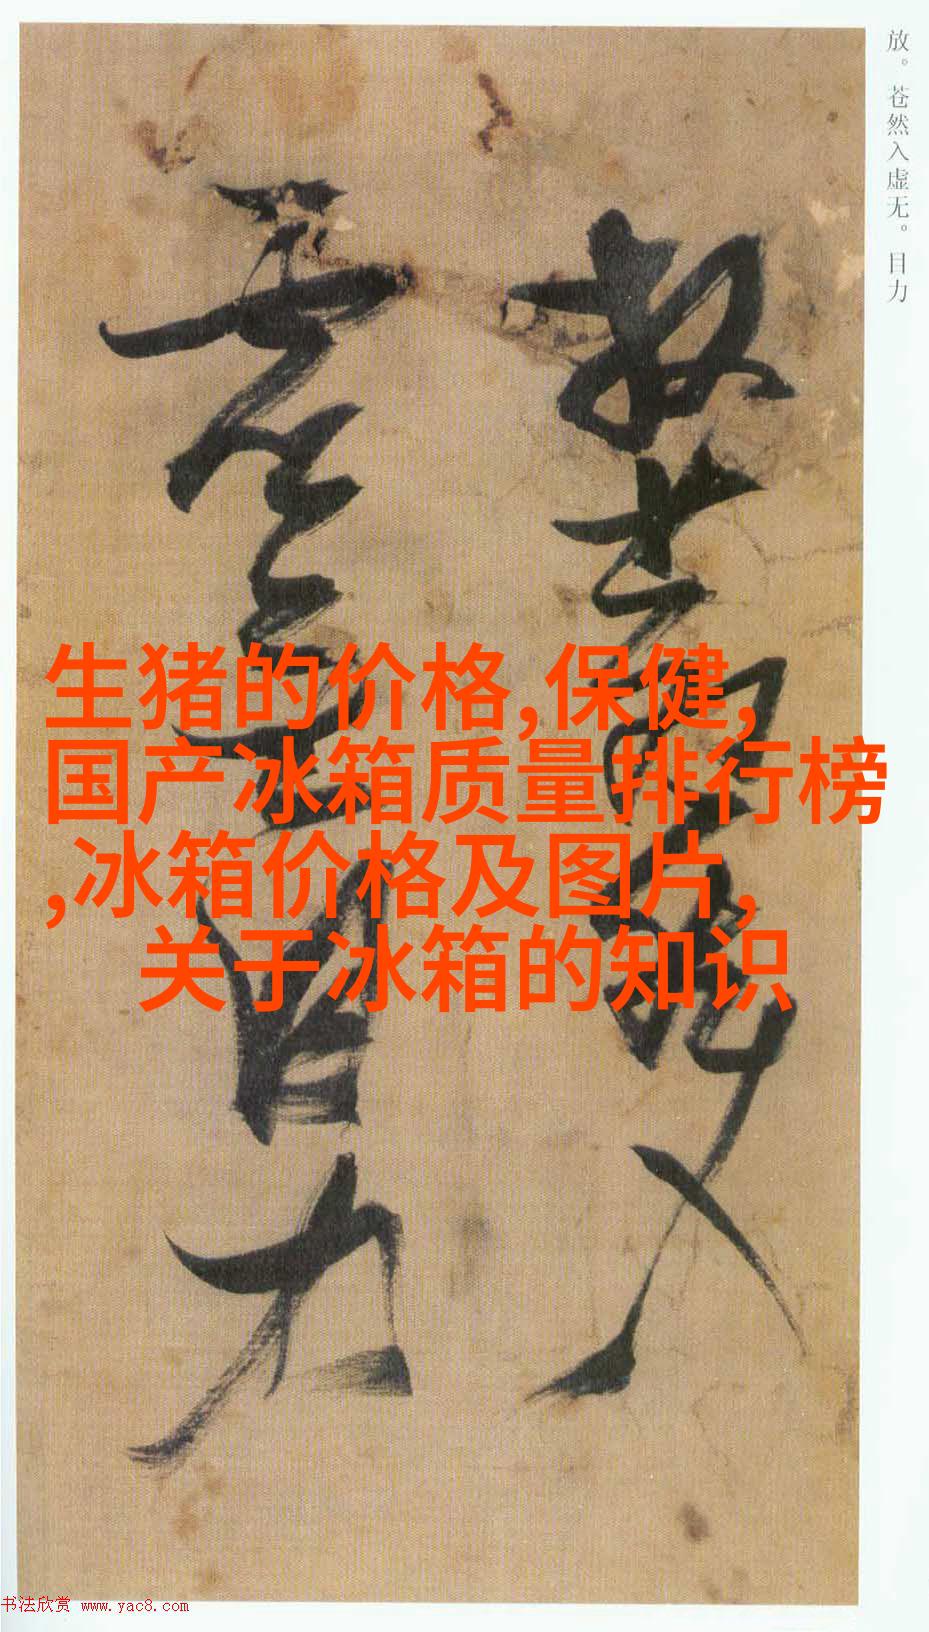 放。苍然入虚无。目力
放苍然入
虚无目力
生猪的价格,保健,
国产冰箱质量排行榜
,冰箱价格及图片,
关于冰箱的知识
书法欣赏 www.yac8.com